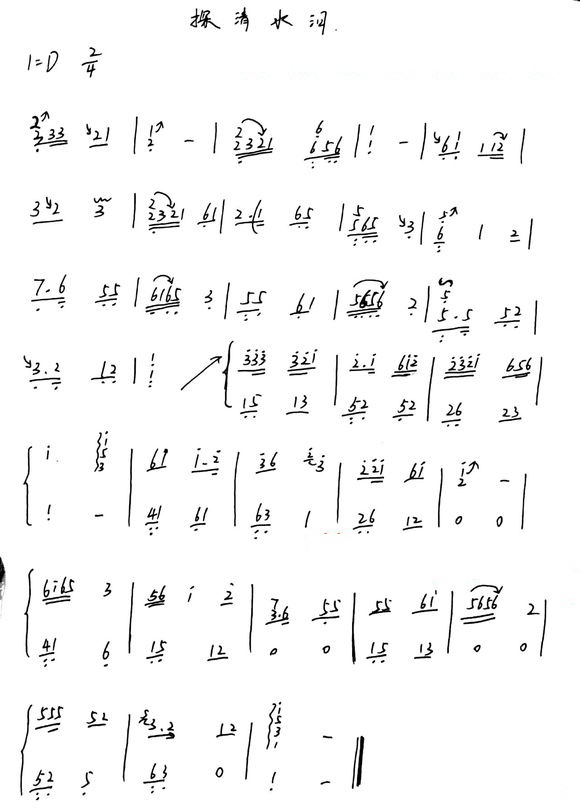 探清水河
1=D 2/4
2 333 21 | 1 2 - | 2 2321 6 656 | 1 1 - | 61 112 |
32 3 | 2 2321 61 | 2·(1 65 | 5 565 3 | 5 6 1 2 |
7·6 55 | 6165 3 | 55 61 | 5656 2 | 5 5·5 52 |
3·2 12 | 1 1 { 333 321 | 2·1 612 | 2321 656 |
15 13 52 52 26 23
{ 1 1 5 3 | 61 1·2 | 36 2 3 | 221 61 | 1 2 - |
1 - 41 61 63 1 26 12 0 0
{ 6165 3 | 56 1 2 | 7 3·6 55 | 55 61 | 5656 2 |
41 6 15 12 0 0 15 13 0 0
{ 555 52 | 5 3·2 12 | 1 5 3 1 - ‖
52 5 63 0 1 -